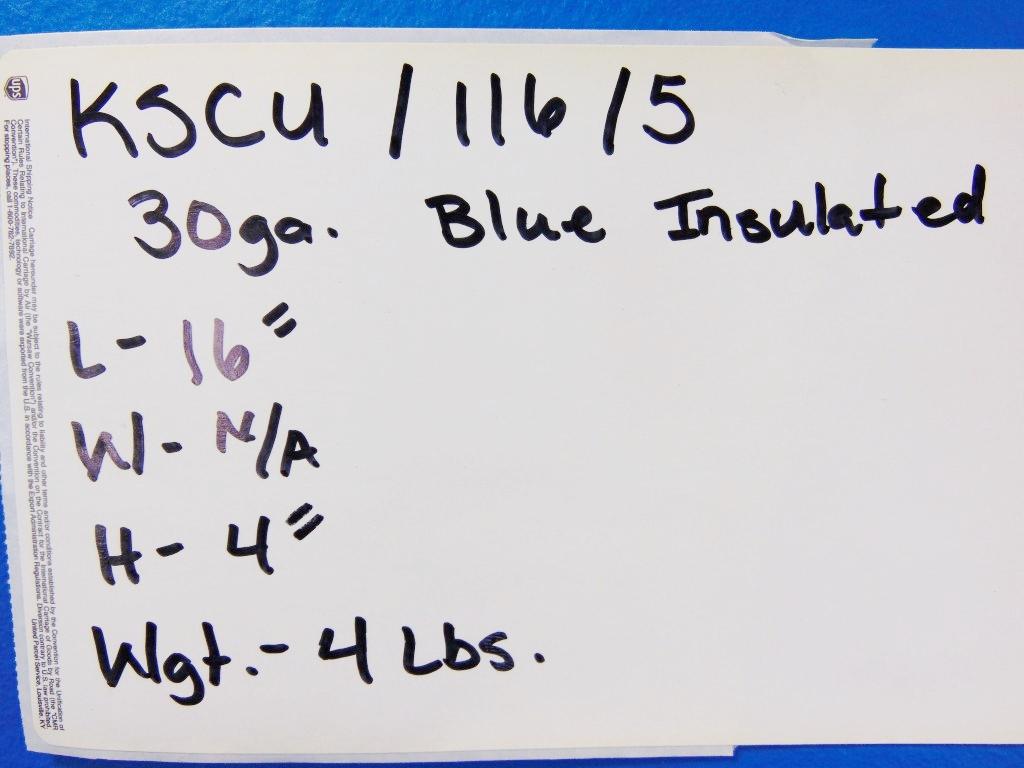 KSCU / 116 / 5
30ga. Blue Insulated
L- 16"
W- N/A
H- 4"
Wgt.- 4 Lbs.
ups
International Shipping Notice Carriage hereunder may be subject to the rules relating to liability and other terms and/or conditions established by the Convention for the Unification of
Certain Rules Relating to International Carriage by Air (the "Warsaw Convention") and/or the Convention on the Contract for the International Carriage of Goods by Road (the "CMR
Convention"). These commodities, technology or software were exported from the U.S. in accordance with the Export Administration Regulations. Diversion contrary to U.S. law prohibited.
For stopping places, call 1-800-782-7892. United Parcel Service, Louisville, KY